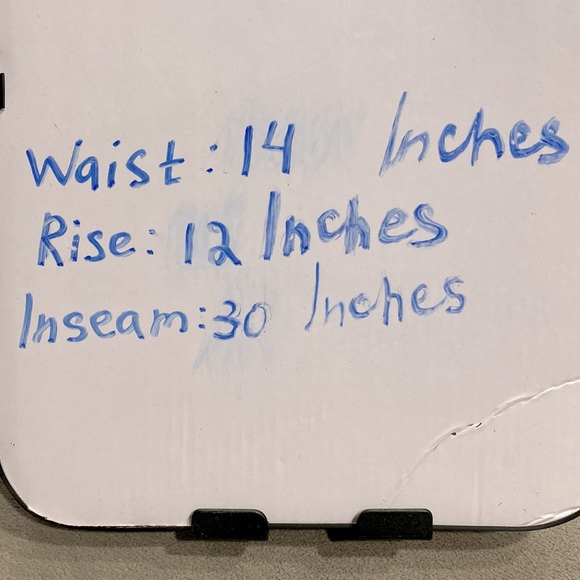 Waist: 14 Inches
Rise: 12 Inches
Inseam: 30 Inches